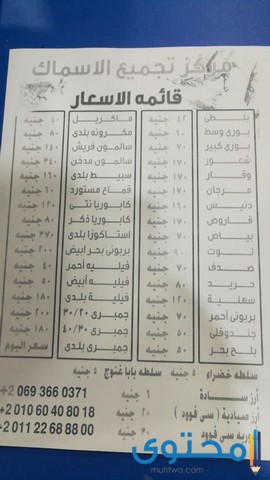 مركز تجميع الاسماك
قائمه الاسعار
بلطى ٤٢ جنيه ماكريل ٤٠ جنيه
بورى وسط ٦٠ جنيه مكرونه بلدى ٨٠ جنيه
بورى كبير ٧٠ جنيه سالمون فريش ١٤٠ جنيه
شعور ٧٠ جنيه سالمون مدخن ٣٤٠ جنيه
وقار ١٧٠ جنيه سبيط بلدى ١٦٠ جنيه
مرجان ٧٠ جنيه قماع مستورد ٦٠ جنيه
دنيس ١٦٠ جنيه كابوريا نتى ١٢٠ جنيه
قاروص ١٧٠ جنيه كابوريا ذكر ٨٠ جنيه
بياض ٧٠ جنيه استاكوزا بلدى ٣٧٠ جنيه
موت ٩٠ جنيه بربونى بحر أبيض ٢٠٠ جنيه
صدف ٧٠ جنيه فيليه أحمر ٤٠ جنيه
حريد ٨٠ جنيه فيليه أبيض ٥٠ جنيه
سهلية ١٢٠ جنيه فيليه بلدى ١٨٠ جنيه
بربونى أحمر ٧٠ جنيه جمبرى ٢٠/٣٠ ٢٠٠ جنيه
جندوفلى ٥٠ جنيه جمبرى ٣٠/٤٠ ١٨٠ جنيه
بلح بحر ٥٠ جنيه جمبرى بلدى سعر اليوم
سلطه خضراء ٥ جنيه سلطه بابا غنوج ٥ جنيه
أرز سادة ١ جنيه
أرز صيادية (سى فوود) ٢٠ جنيه
سى فوود ٣٠ جنيه
+2 069 366 0371
+2 010 60 40 80 18
+2 011 22 68 88 00
محتوى
muhtwa.com